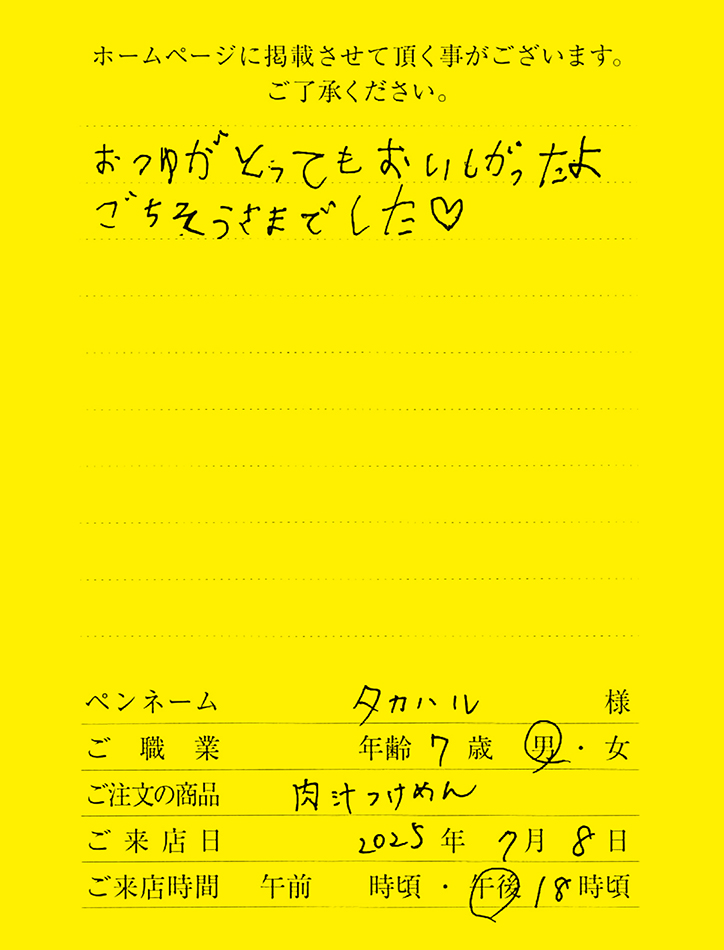 ホームページに掲載させて頂く事がございます。
ご了承ください。
おつゆがとってもおいしがったよ
ごちそうさまでした♡
ペンネーム タカハル 様
ご職業 年齢 7 歳 男・女
ご注文の商品 肉汁つけめん
ご来店日 2025年 7月 8日
ご来店時間 午前 時頃・午後 18時頃